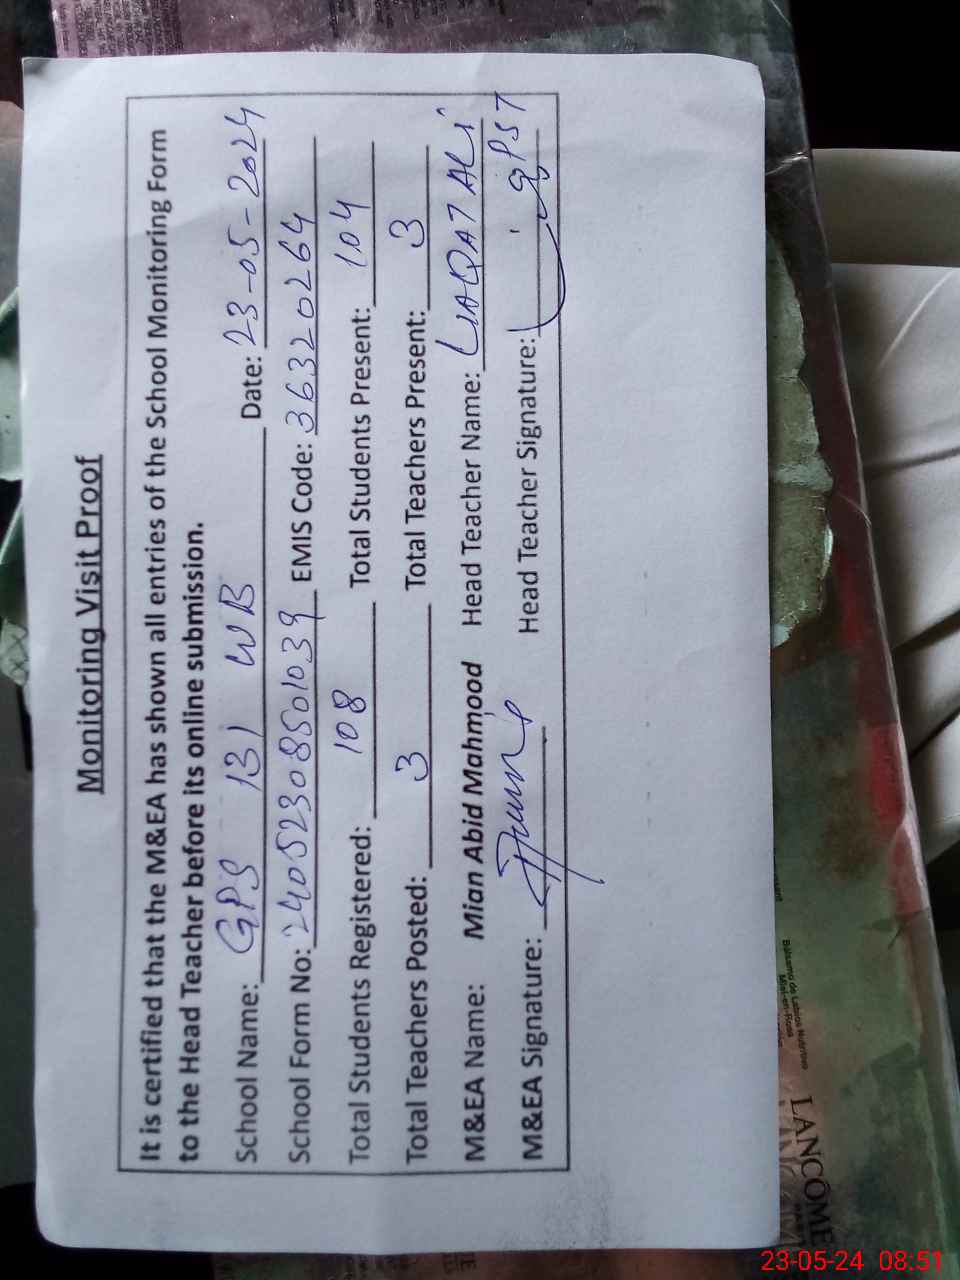 Monitoring Visit Proof
It is certified that the M&EA has shown all entries of the School Monitoring Form
to the Head Teacher before its online submission.
School Name: GPS 131 WB Date: 23-05-2024
School Form No: 24052308501039 EMIS Code: 36320264
Total Students Registered: 108 Total Students Present: 104
Total Teachers Posted: 3 Total Teachers Present: 3
M&EA Name: Mian Abid Mahmood Head Teacher Name: LIAQAT ALi
M&EA Signature: Head Teacher Signature: GPST
Balsamo de Labios Nutritivo
Miel-en-Rosa
LANCÔME
23-05-24 08:51